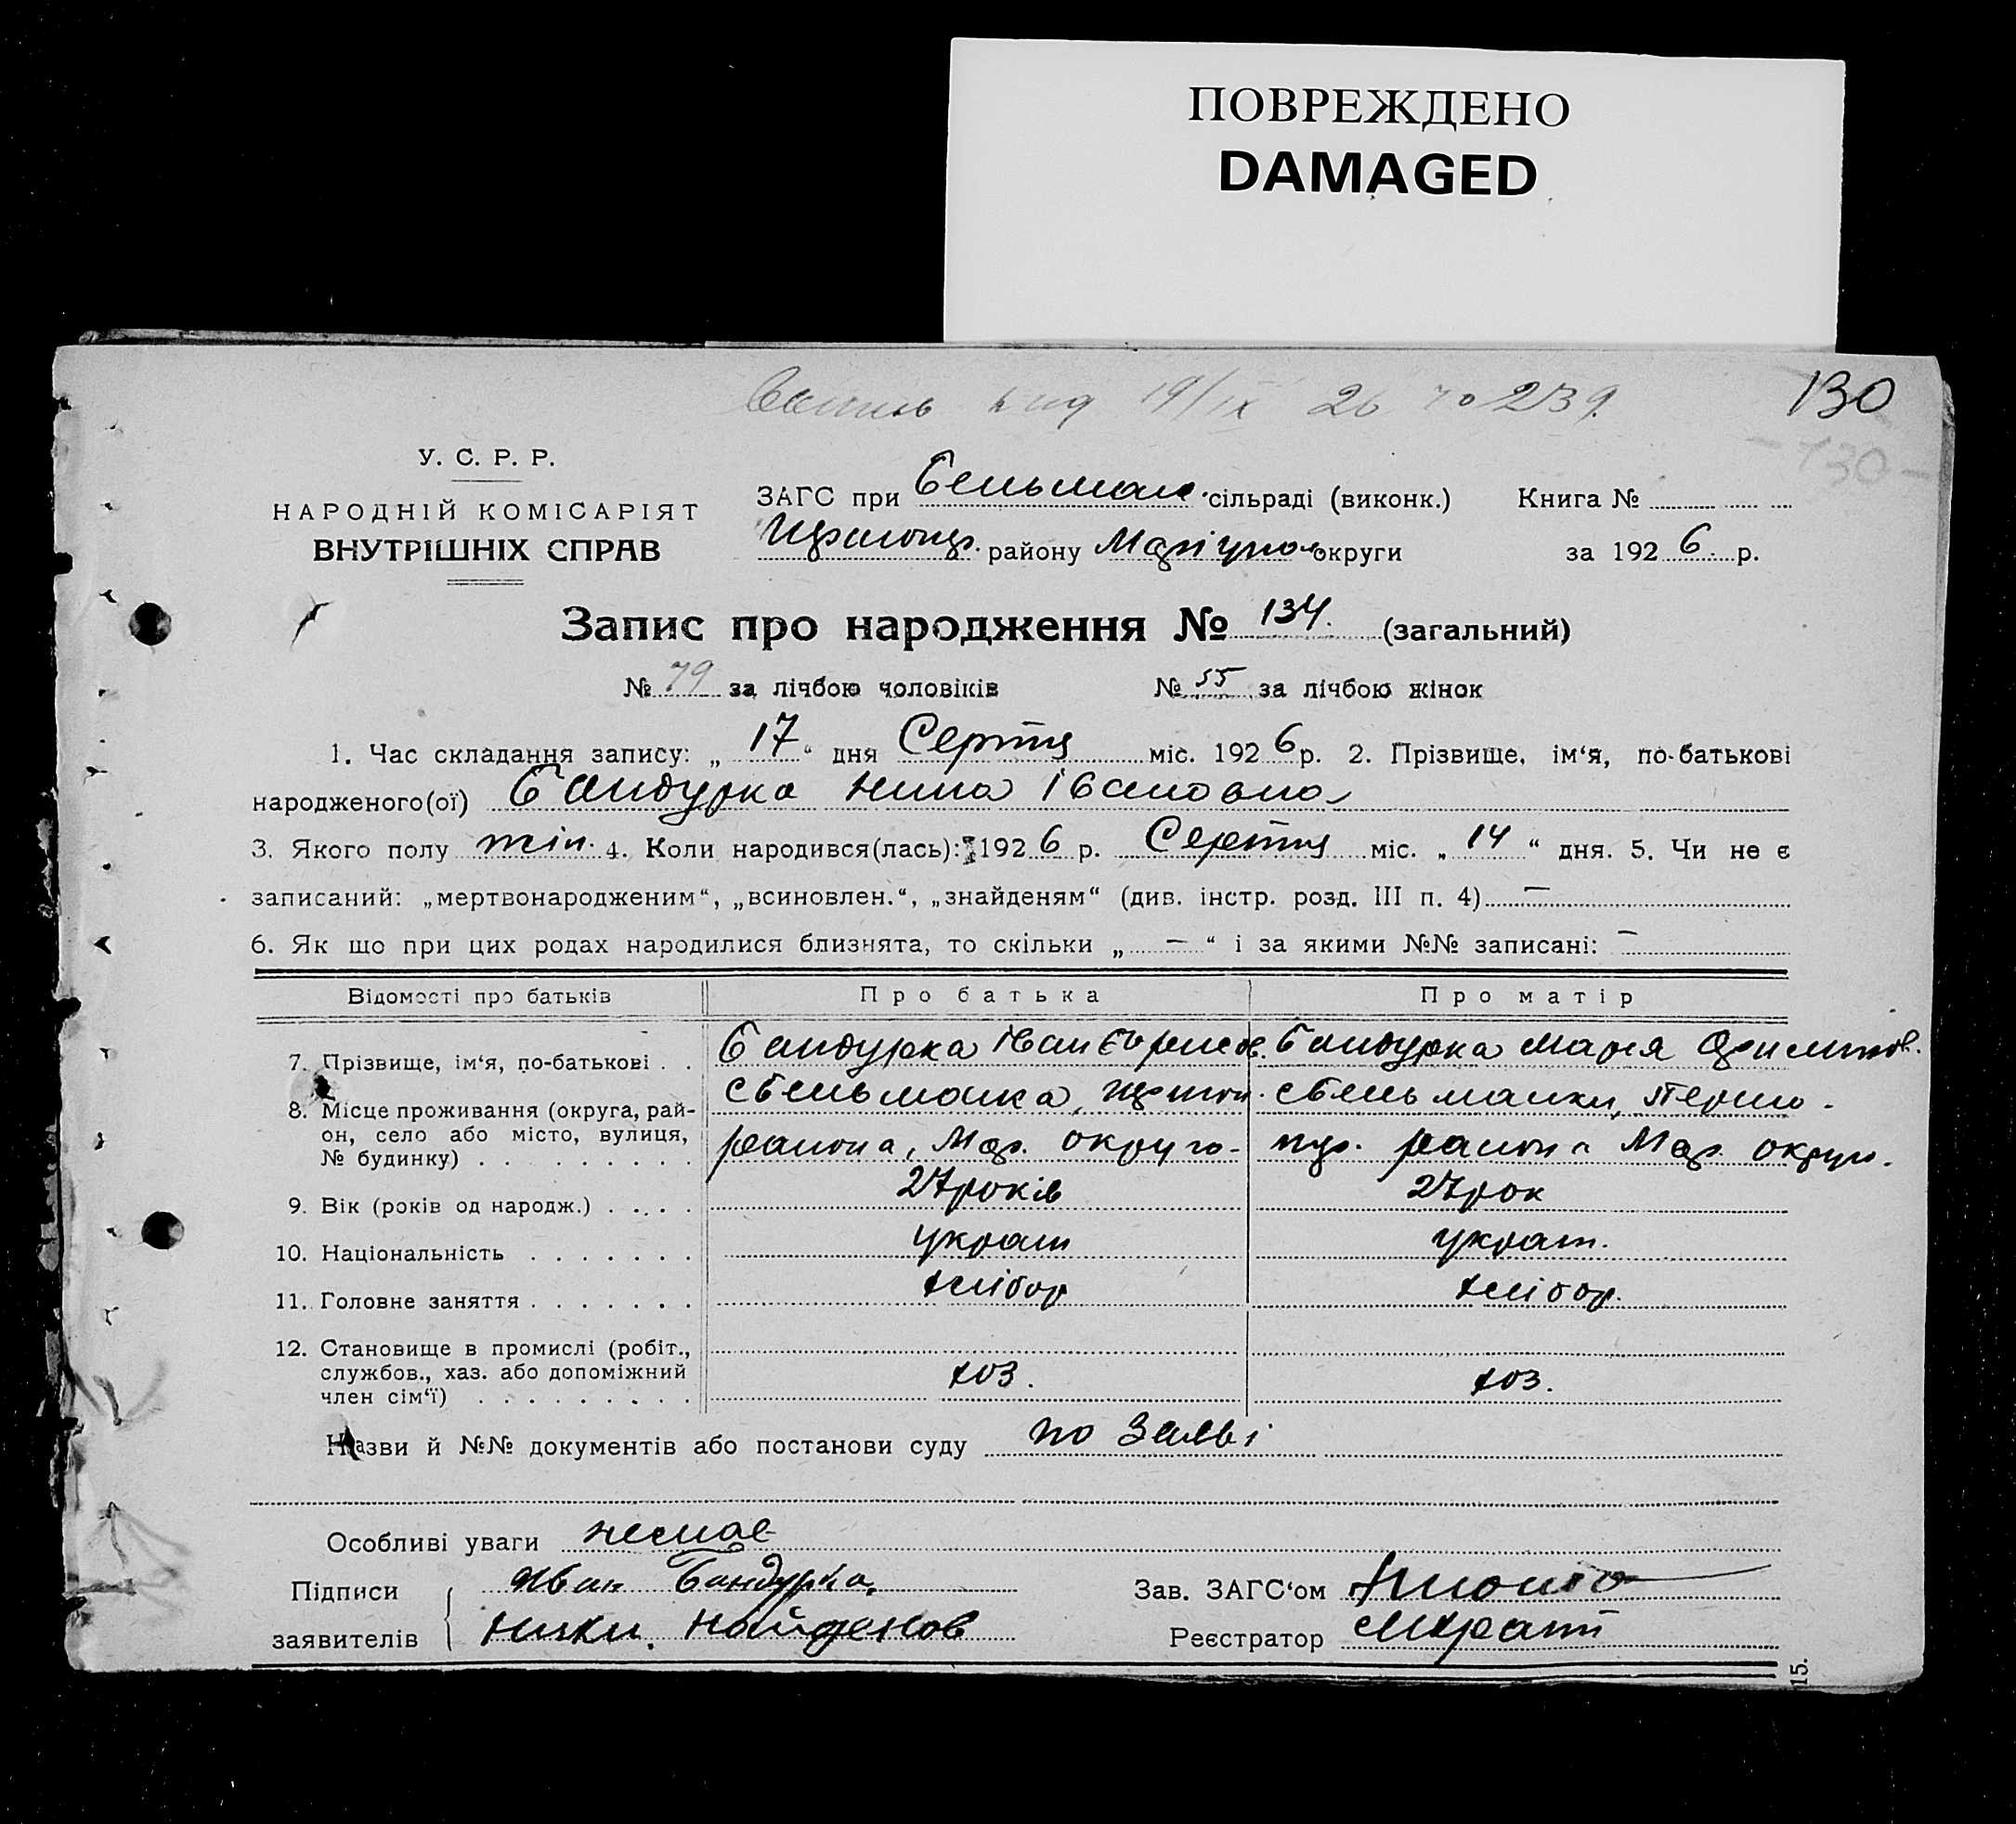 ПОВРЕЖДЕНО
DAMAGED
19/IX 26 239.
130
130
У. С. Р. Р.
НАРОДНІЙ КОМІСАРІЯТ
ВНУТРІШНІХ СПРАВ
ЗАГС при Бельман. сільраді (виконк.) Книга №
району Маріупол округи за 1926 р.
Запис про народження № 134. (загальний)
№ 79 за лічбою чоловіків № 55 за лічбою жінок
1. Час складання запису: „ 17 “ дня Серпня міс. 1926 р. 2. Прізвище, ім‘я, по-батькові
народженого(ої) Бандурка Нина Івановна
3. Якого полу жін. 4. Коли народився(лась): 1926 р. Серпня міс. „ 14 “ дня. 5. Чи не є
записаний: „мертвонародженим“, „всиновлен.“, „знайденям“ (див. інстр. розд. III п. 4) —
6. Як що при цих родах народилися близнята, то скільки „ — “ і за якими №№ записані: —
Відомості про батьків Про батька Про матір
7. Прізвище, ім‘я, по-батькові . . Бандурка Іван Бандурка Мария
8. Місце проживання (округа, рай- с Бельманка, с Бельманки,
он, село або місто, вулиця, района, Мар. округо- района Мар. округи.
№ будинку) . . . . . . . . .
9. Вік (років од народж.) . . . . 27 років 27 рок
10. Національність . . . . . . . україн україн.
11. Головне заняття . . . . . . . хлібор хлібор.
12. Становище в промислі (робіт.,
службов., хаз. або допоміжний хоз. хоз.
член сім‘ї) . . . . . . . . .
Назви й №№ документів або постанови суду по заяві
Особливі уваги немає
Підписи Иван Бандурка. Зав. ЗАГС‘ом
заявителів Ники. Найденов Реєстратор
15.